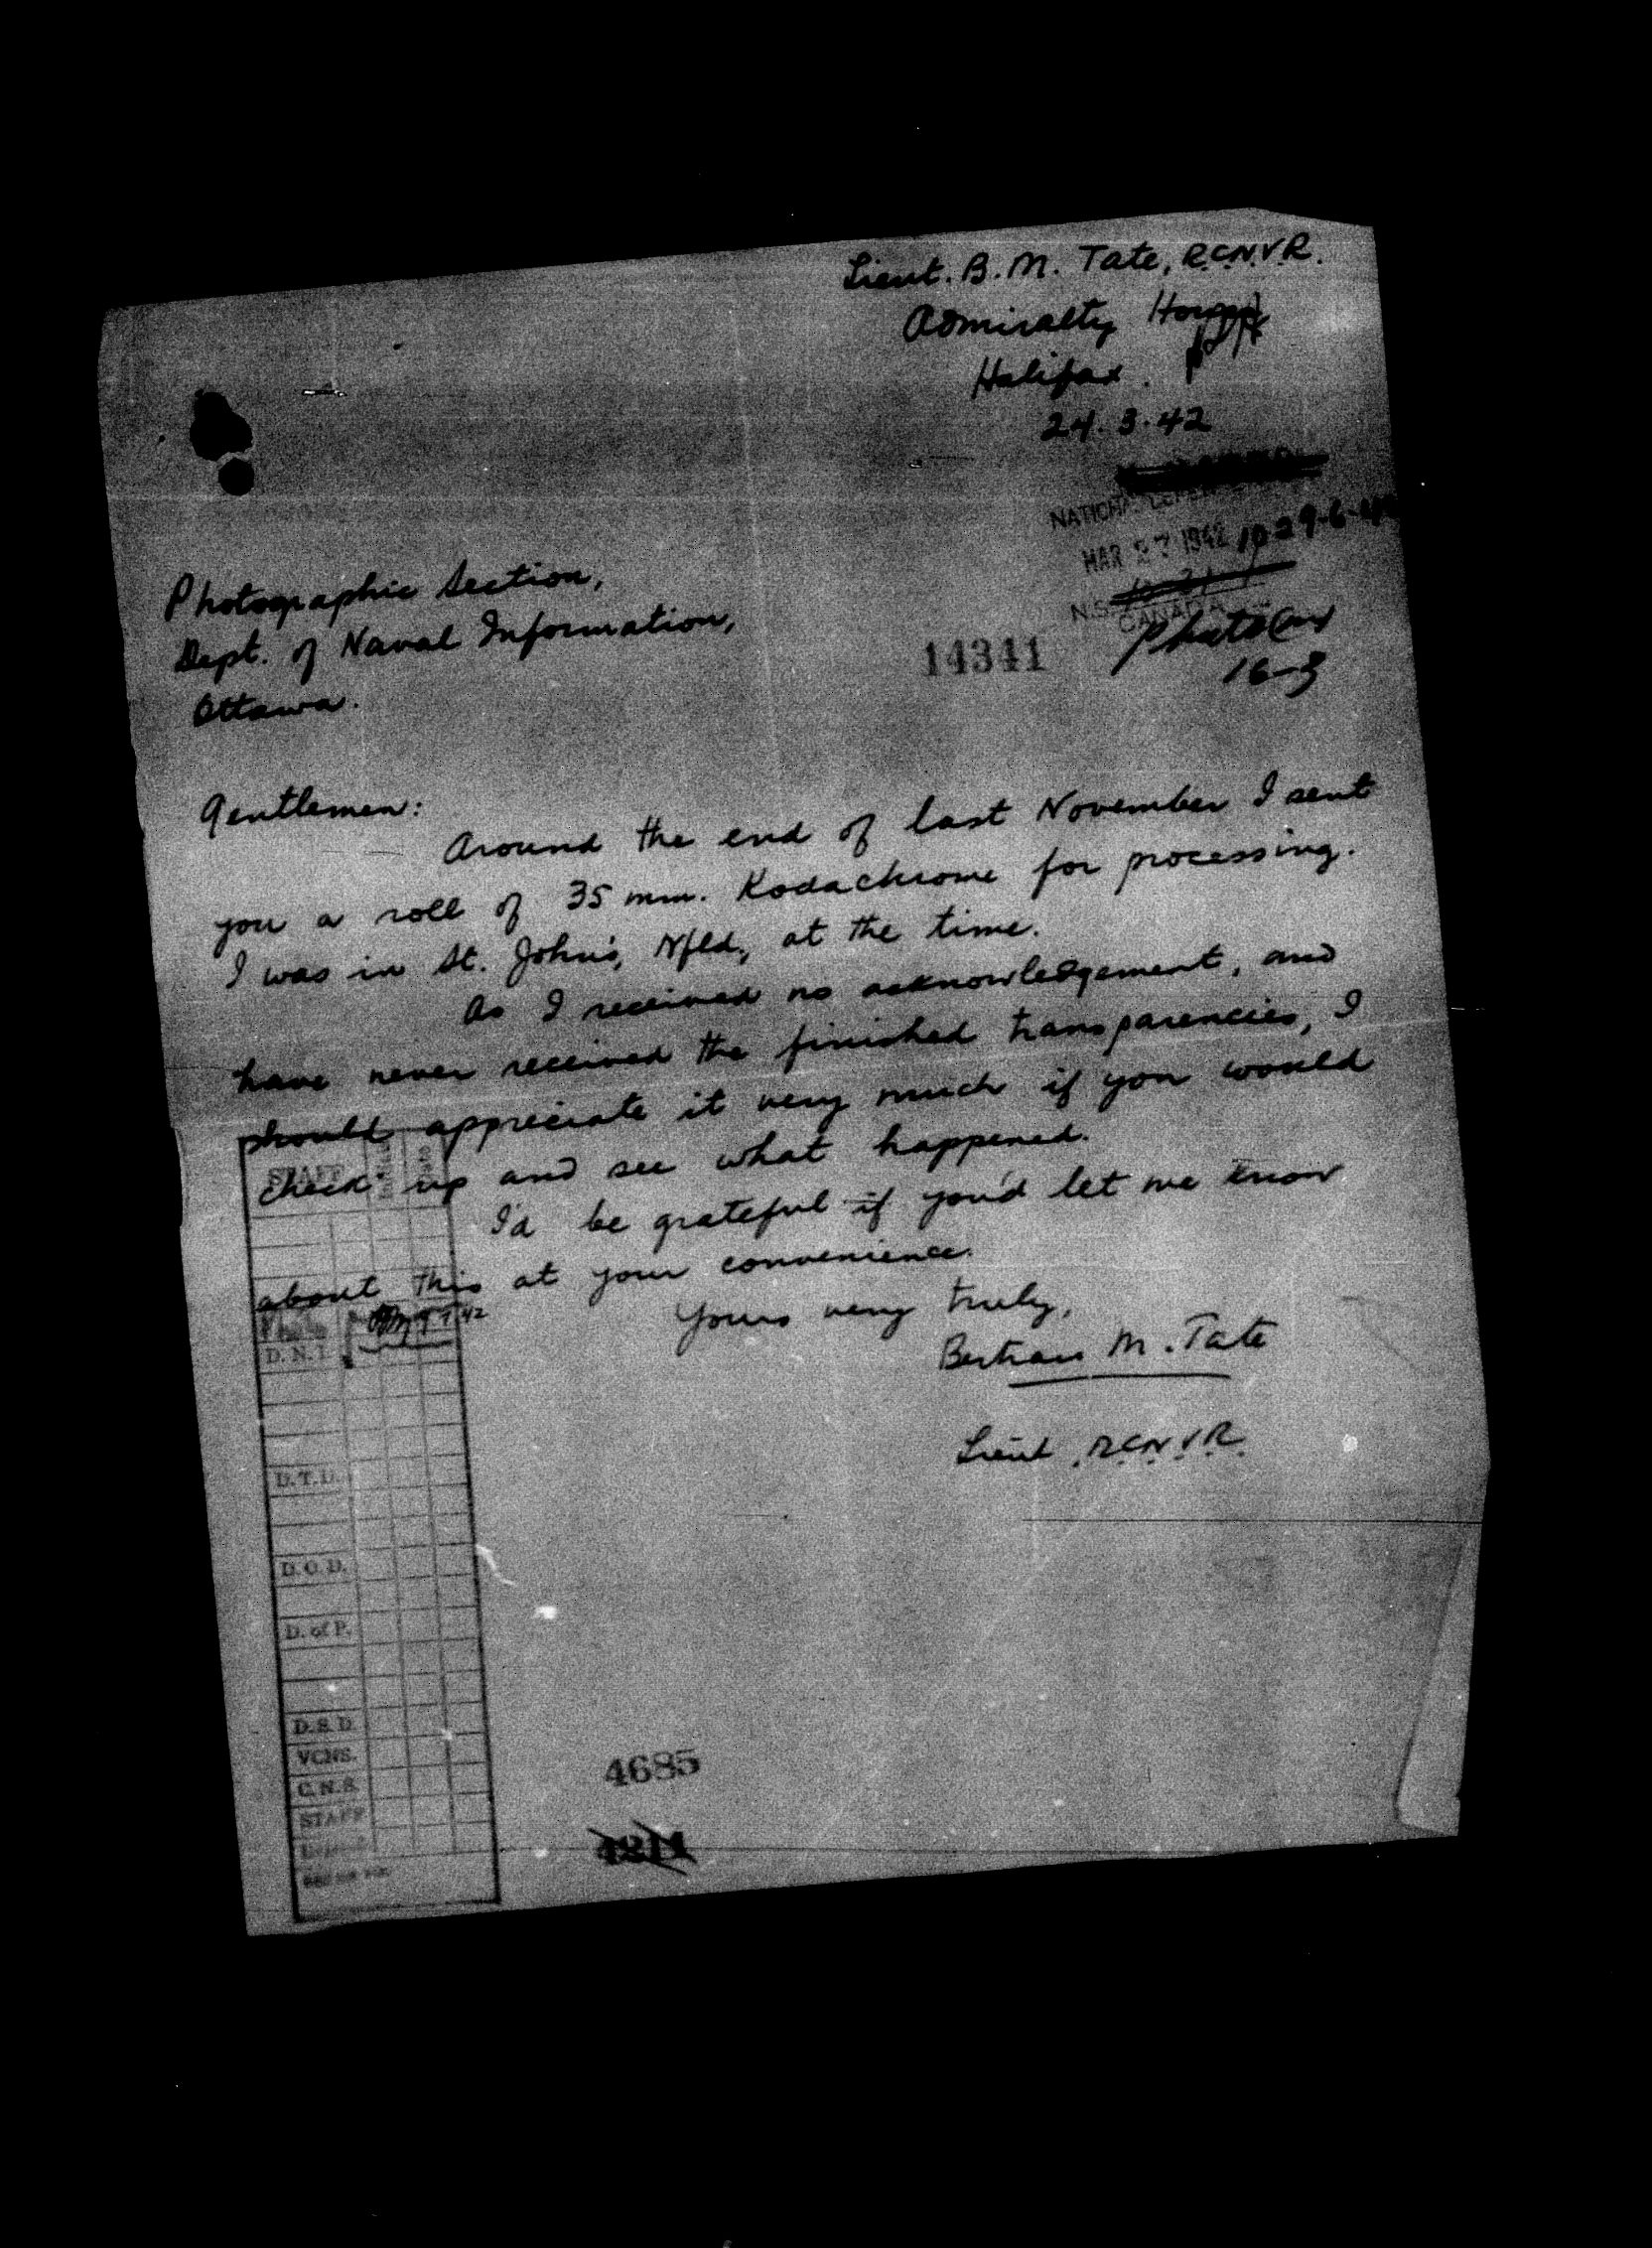 Lieut. B. M. Tate, R.C.N.V.R.
Admiralty House
Halifax.
24.3.42
MAR 27 1942 10-29-6-
N.S.
CANADA
14341
16-3
Photographic Section,
Dept. of Naval Information,
Ottawa.
Gentlemen:
Around the end of last November I sent
you a roll of 35 mm. Kodachrome for processing.
I was in St. John's, Nfld., at the time.
As I received no acknowledgement, and
have never received the finished transparencies, I
should appreciate it very much if you would
check up and see what happened.
I'd be grateful if you'd let me know
about this at your convenience.
Yours very truly,
Bertram M. Tate
Lieut. R.C.N.V.R.
STAFF Initials Date
Photo
D.N.I.
D.T.D.
D.O.D.
D. of P.
D.S.D.
VCNS.
C.N.S.
STAFF
4685
4211